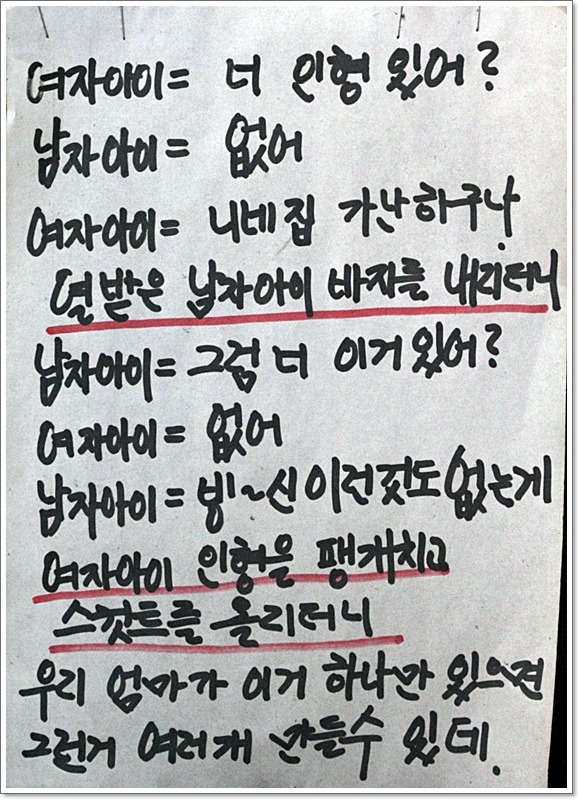 여자아이= 너 인형 있어?
남자아이= 없어
여자아이= 니네집 가난하구나.
열받은 남자아이 바지를 내리더니
남자아이= 그럼 너 이거 있어?
여자아이= 없어
남자아이= 빙~신 이런것도 없는게
여자아이 인형을 팽개치고
스컷트를 올리더니
우리 엄마가 이거 하나만 있으면
그런거 여러개 만들수 있데.